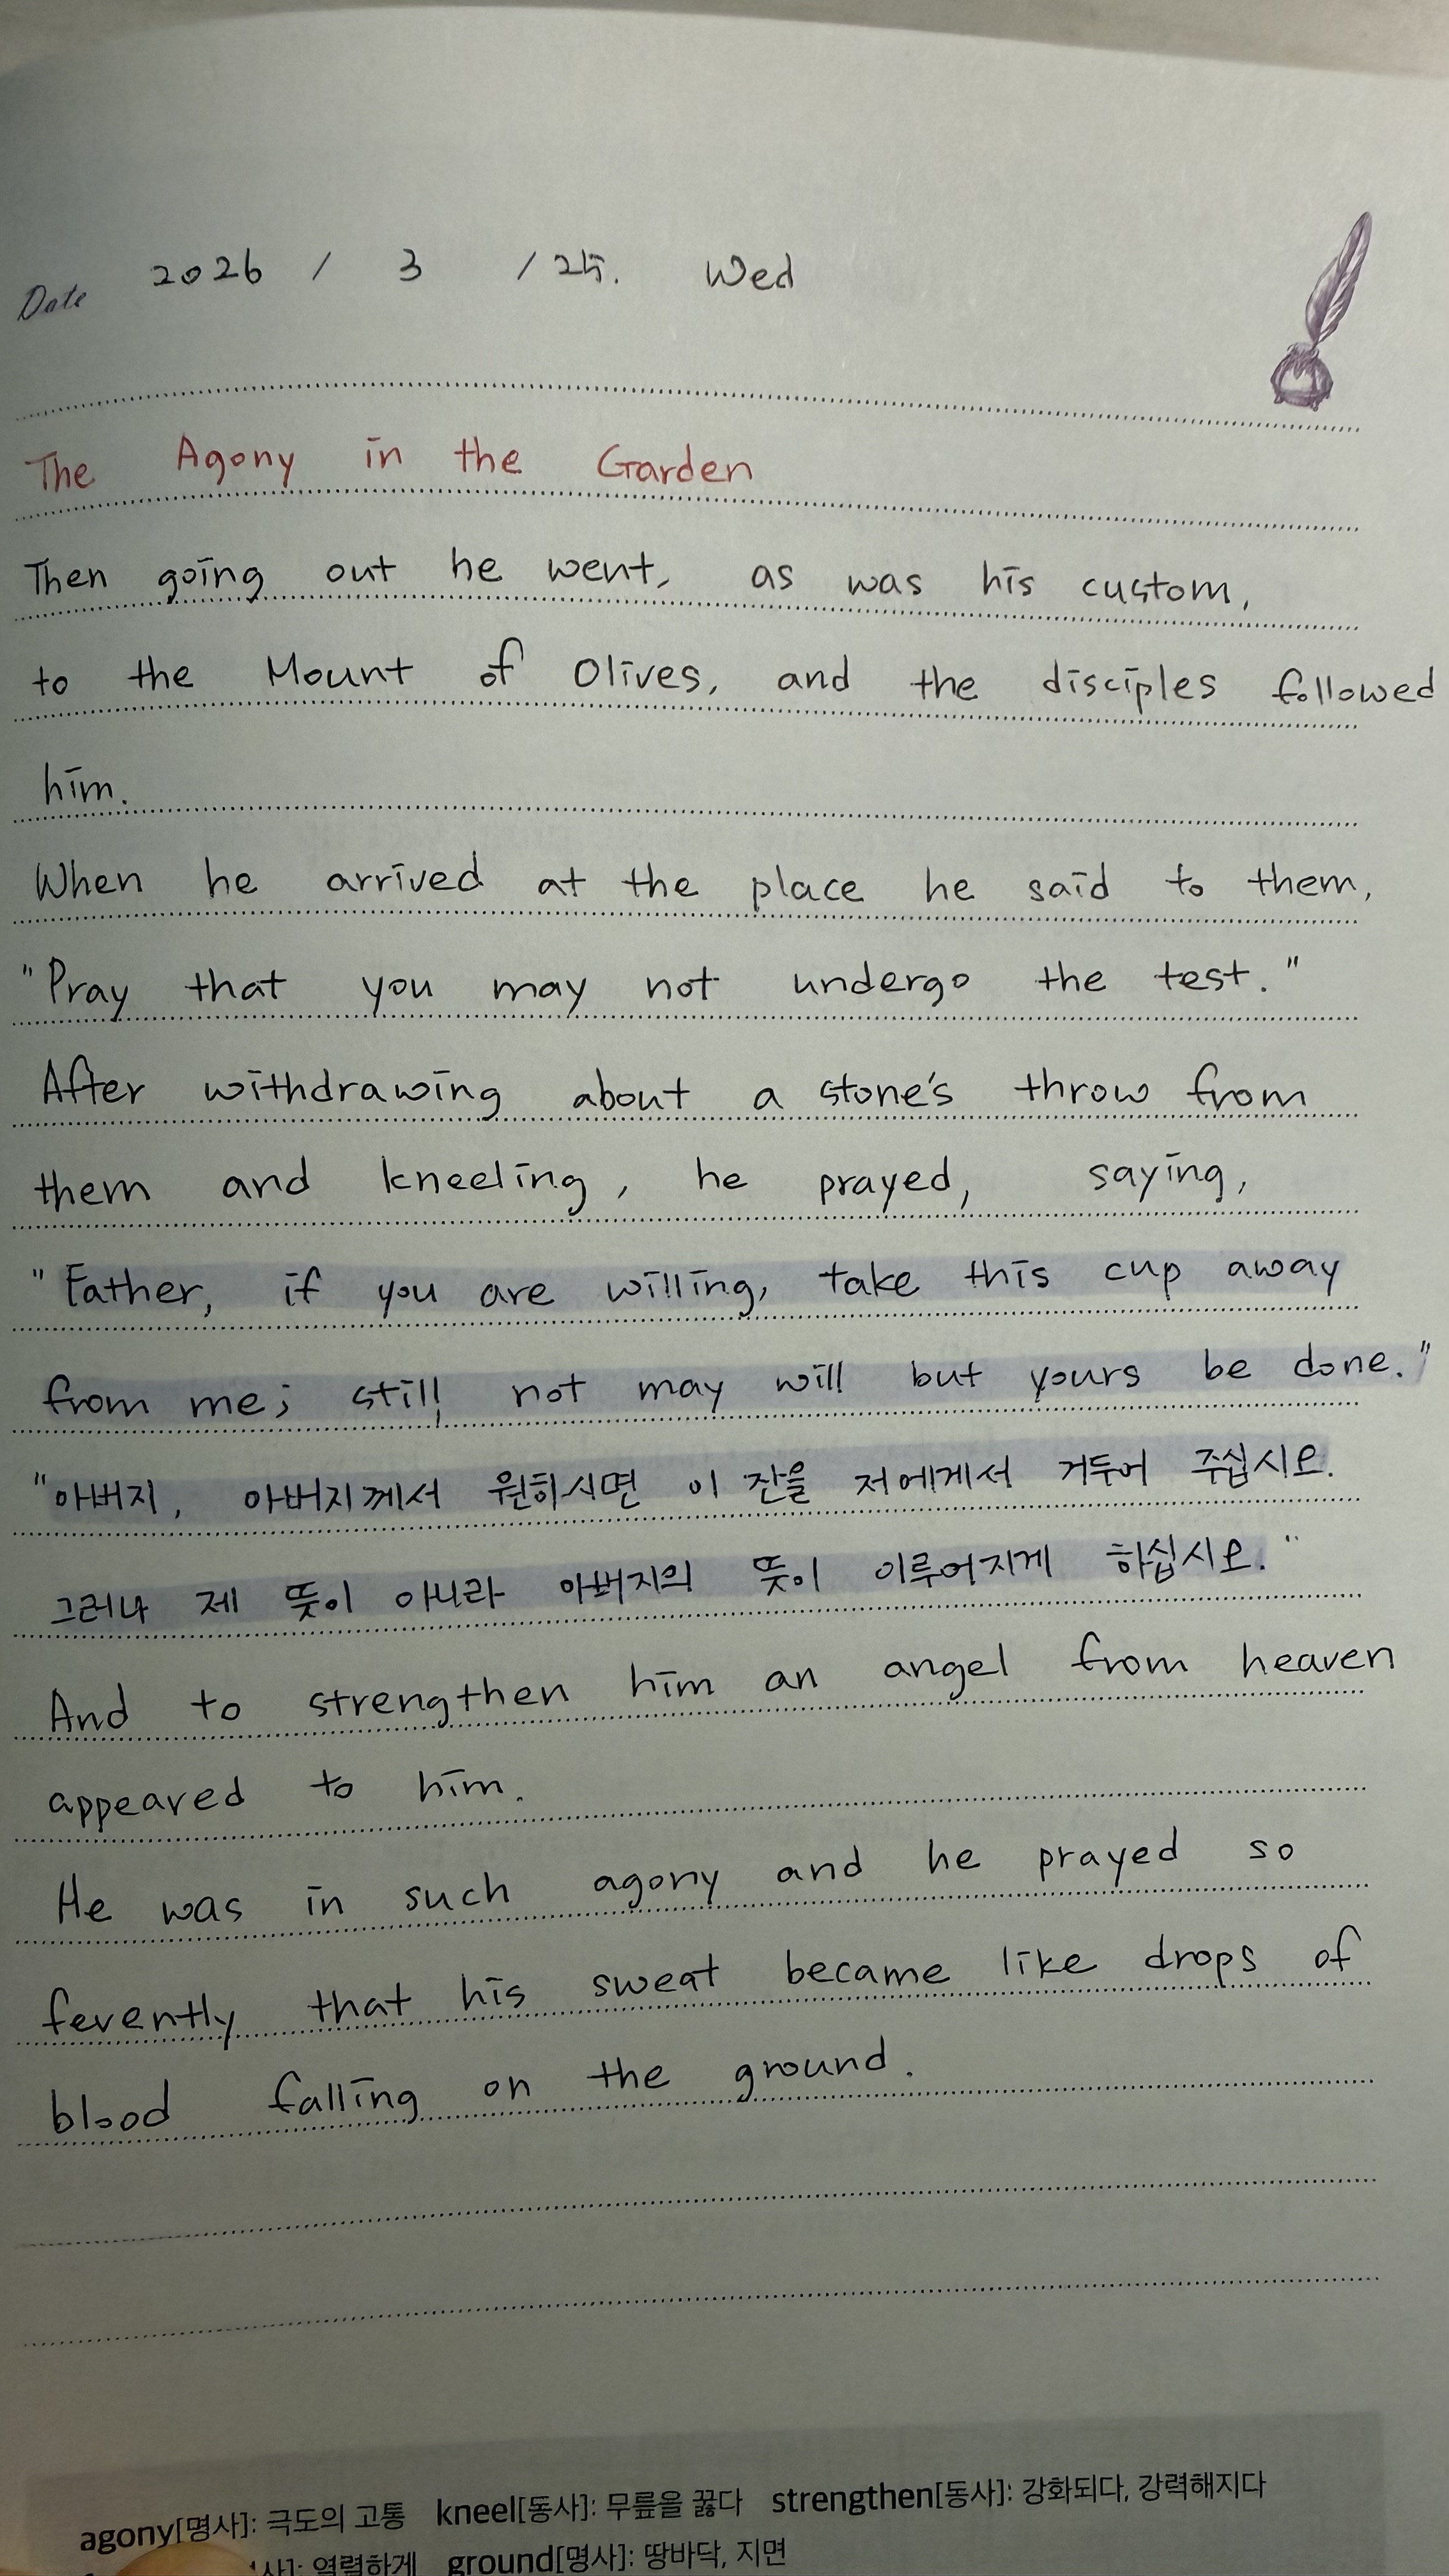 Date 2026 / 3 / 25. Wed
The Agony in the Garden
Then going out he went, as was his custom,
to the Mount of Olives, and the disciples followed
him.
When he arrived at the place he said to them,
"Pray that you may not undergo the test."
After withdrawing about a stone's throw from
them and kneeling, he prayed, saying,
"Father, if you are willing, take this cup away
from me; still, not may will but yours be done."
"아버지, 아버지께서 원하시면 이 잔을 저에게서 거두어 주십시오.
그러나 제 뜻이 아니라 아버지의 뜻이 이루어지게 하십시오."
And to strengthen him an angel from heaven
appeared to him.
He was in such agony and he prayed so
fevently that his sweat became like drops of
blood falling on the ground.
agony[명사]: 극도의 고통 kneel[동사]: 무릎을 꿇다 strengthen[동사]: 강화되다, 강력해지다
사]: 열렬하게 ground[명사]: 땅바닥, 지면